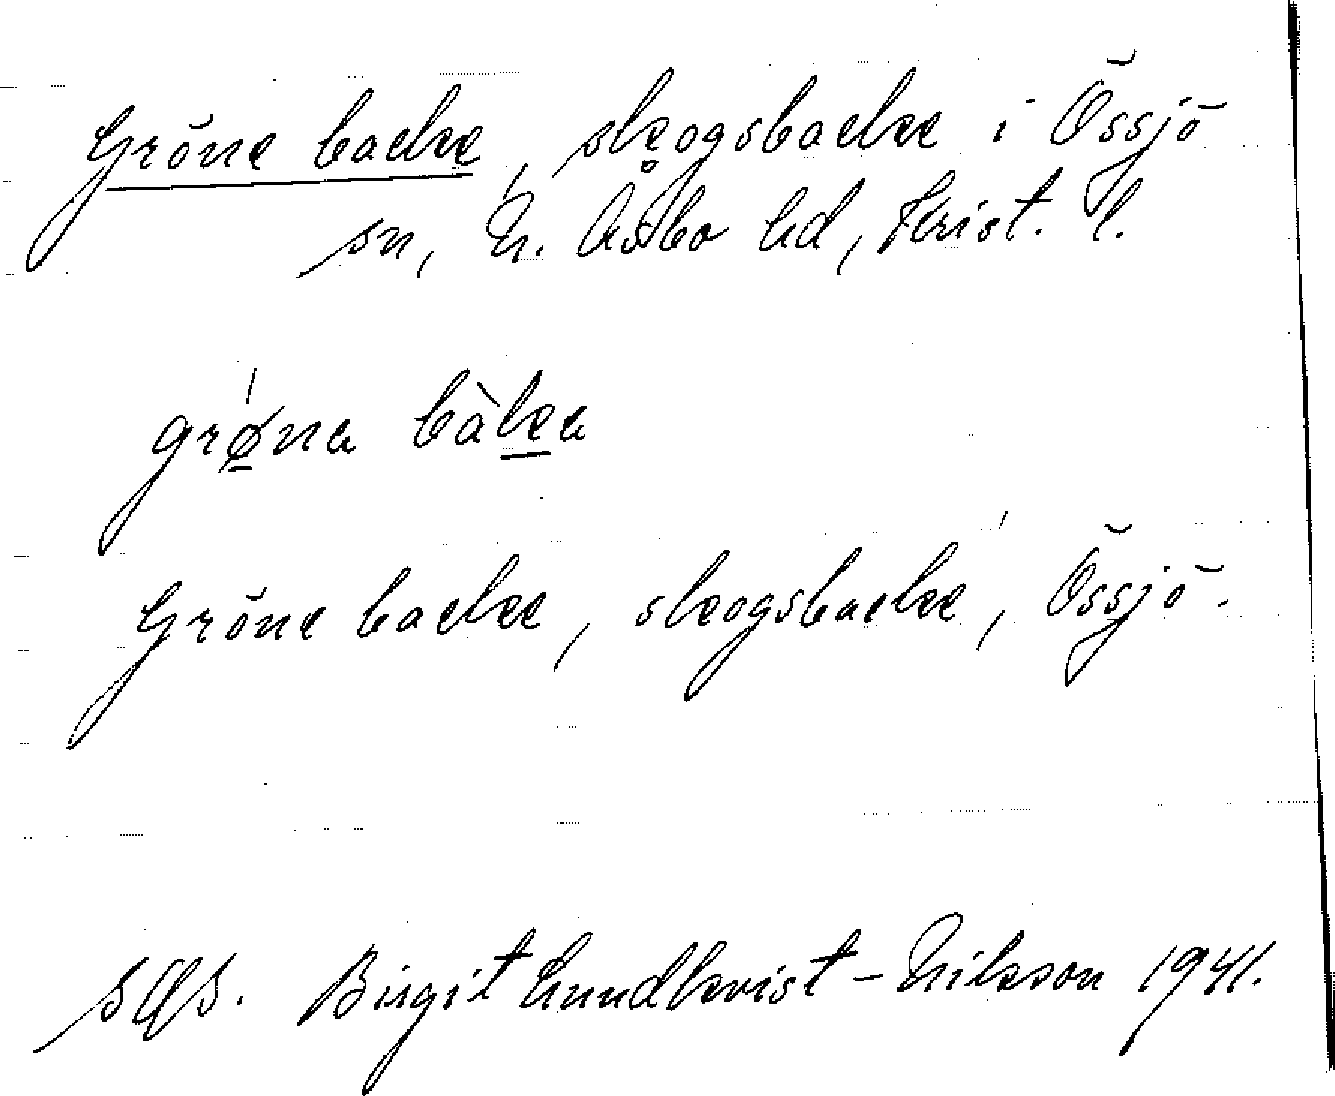 Gröne backe, skogsbacke i Össjö
sn, N. Åsbo hd, Krist. l.
grø̠na bàk̠a
Gröne backe, skogsbacke, Össjö.
SOS. Birgit Lundkvist-Nilsson 1941.